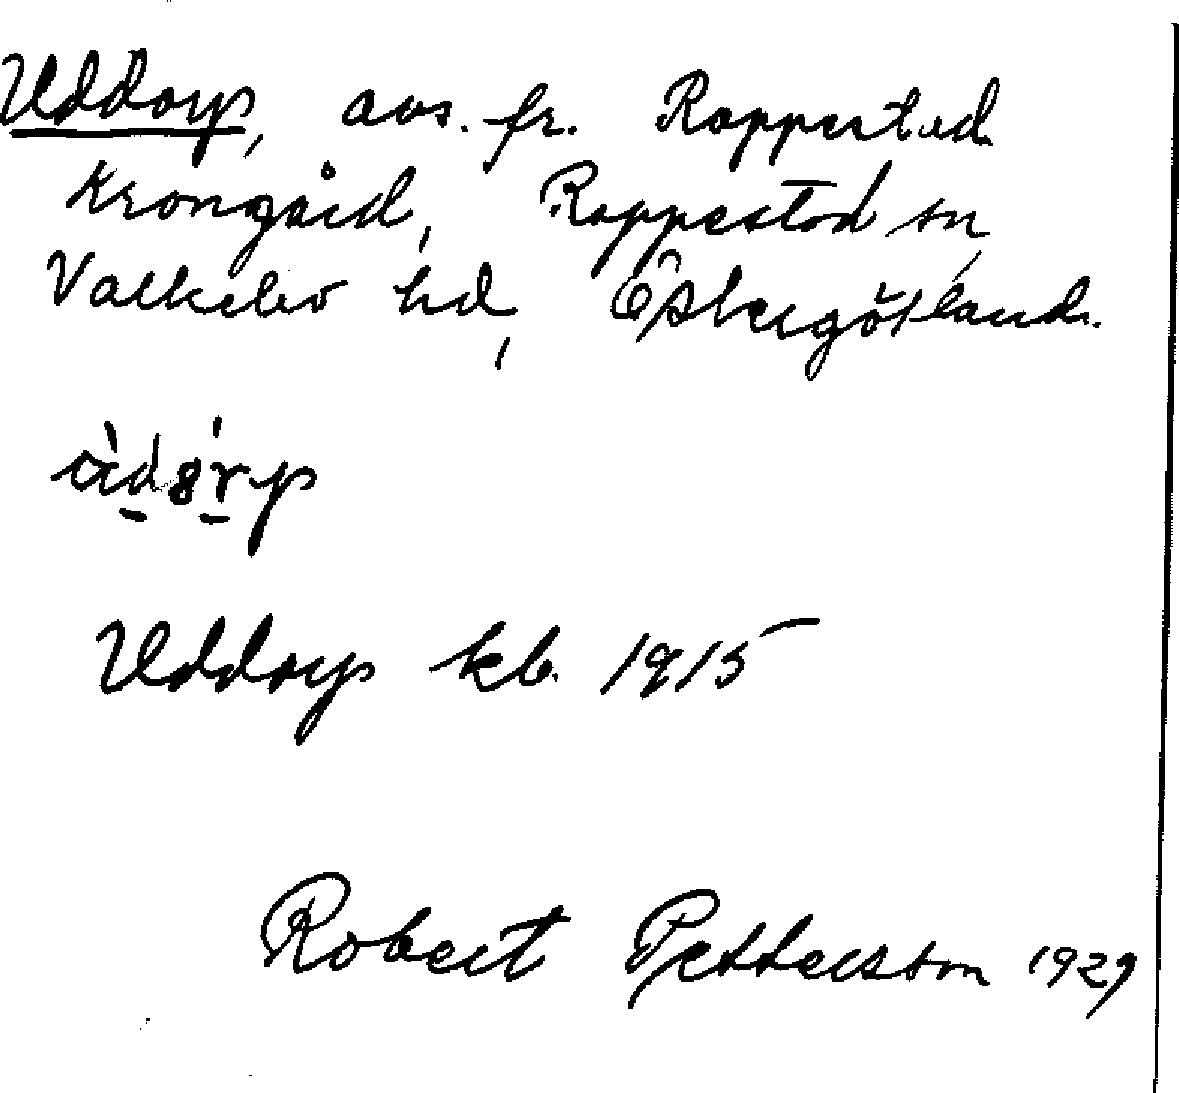 Uddorp, avs. fr. Rappestad
Krongård, Rappestad sn,
Valkebo hd, Östergötland.
Uddorp kb. 1915
Robert Pettersson 1929